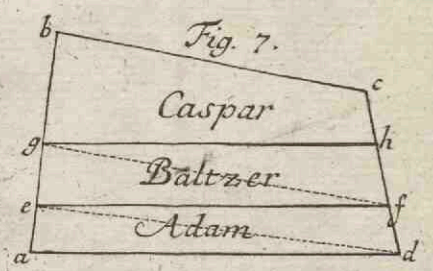 Fig. 7.
b
c
Caspar
g
h
Baltzer
e
f
Adam
a
d